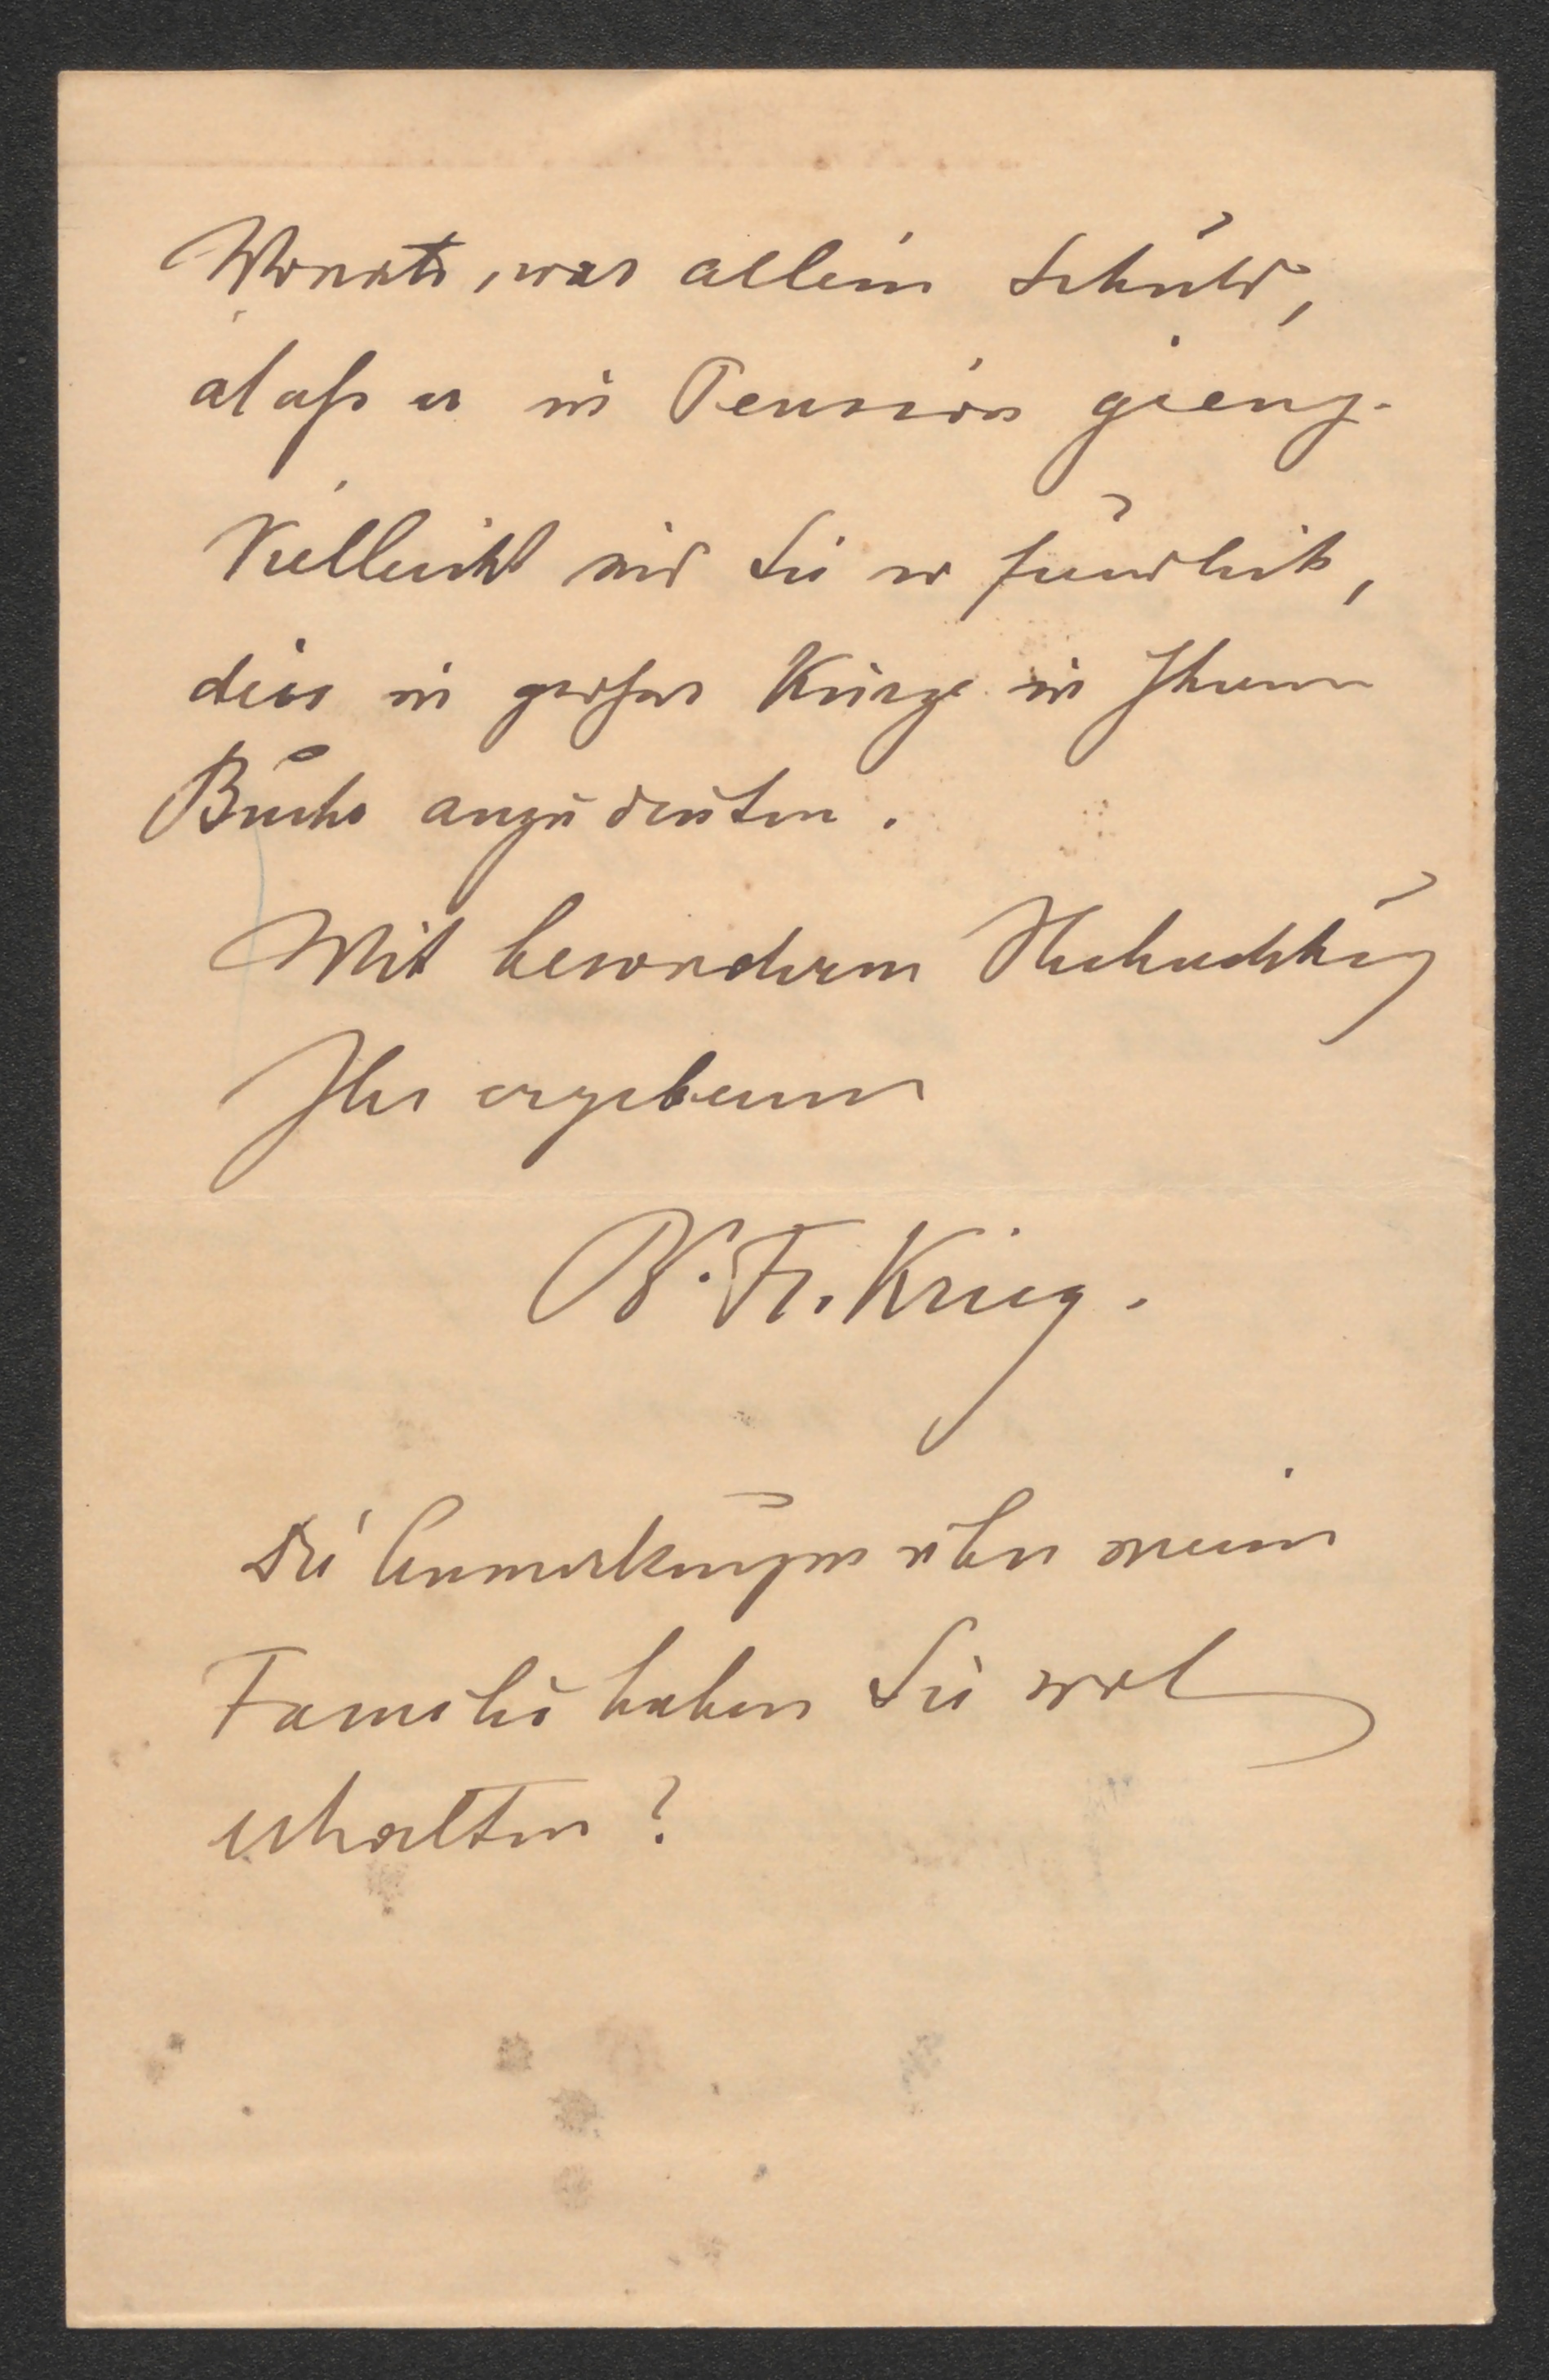 Monate, war allein Schuld,
daß er in Pension gieng.
Vielleicht sind Sie so freundlich,
dies in großer Kürze in Ihrem
Buche anzudeuten.
Mit besonderem Hochachtung
Ihr ergebener
Dr. Fr. Krieg.
Die Anmerkungen über meine
Familie haben Sie wol
erhalten?